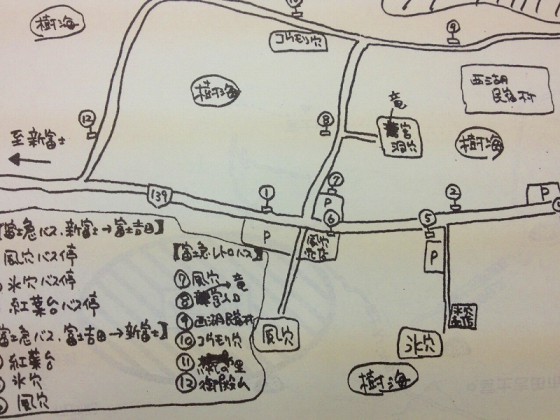 樹海
⑩
コウモリ穴
⑨
西湖
民宿村
樹海
竜
宮
洞穴
樹海
⑫
至新富士
⑧
139
①
⑦
P
②
P
⑥
⑤
P
風穴
売店
P
氷穴
売店
風穴
氷穴
樹海
【富士急バス、新富士→富士吉田】
風穴バス停
氷穴バス停
紅葉台バス停
富士急バス、富士吉田→新富士】
紅葉台
氷穴
風穴
【富士急レトロバス】
⑦風穴
⑧竜宮入口
⑨西湖民宿村
⑩コウモリ穴
⑪
の里
⑫御殿山